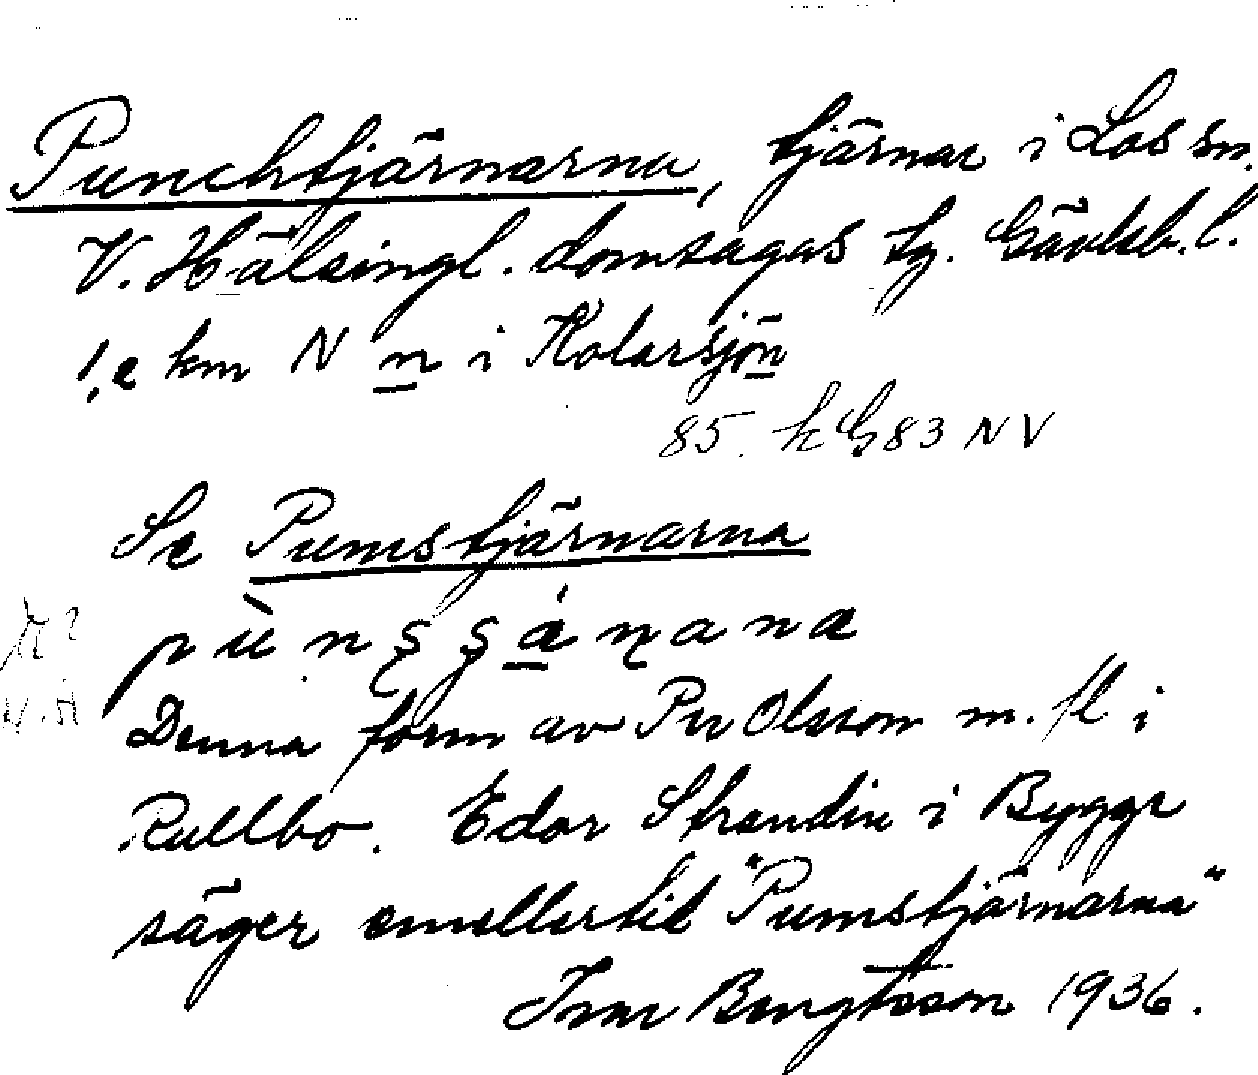 Punchtjärnarna, tjärnar i Los sn.
V. Hälsingl. domsagas tg. Gävleb. l.
km N n i Kolarsjön
85. k G83 NV
Se Pumstjärnarna
Denna form av Per Olsson m. fl i
Rullbo. Edor Strandin i Bygge
säger emellertid "Pumstjärnarna"
Ivar Bengtsson 1936.